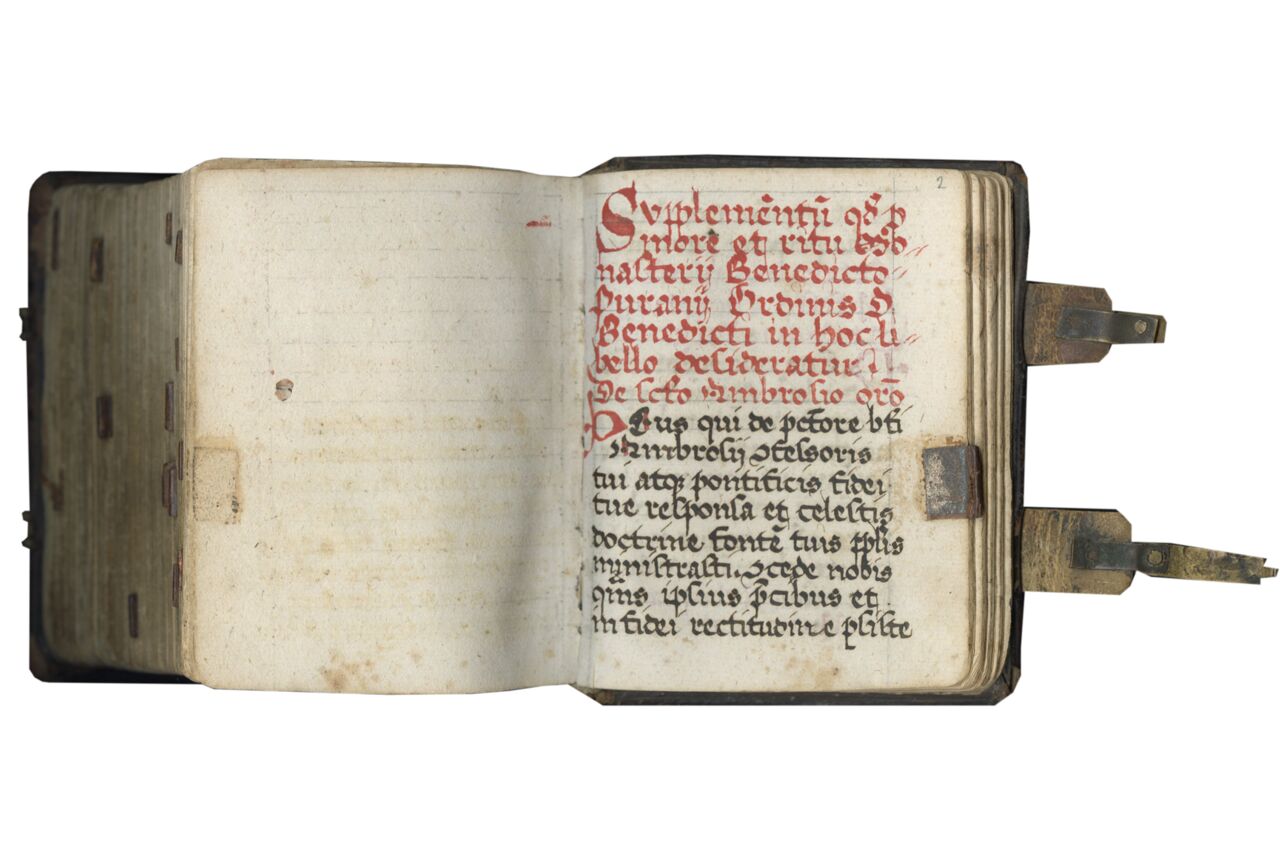 2
Supplementũ qð p
more et ritu
nasterij Benedicto-
Puranij Ordinis D
Benedicti in hoc li-
bello desideratur
De scto Ambrosio orõ
Deus qui de pectore bti
Ambrosij ɔfessoris
tui atq pontificis fidei
tue responsa et celestis
doctrine fontẽ tuis pplis
mynistrasti. ɔcede nobis
qms ipsius p̃cibus et
in fidei rectitudine psiste